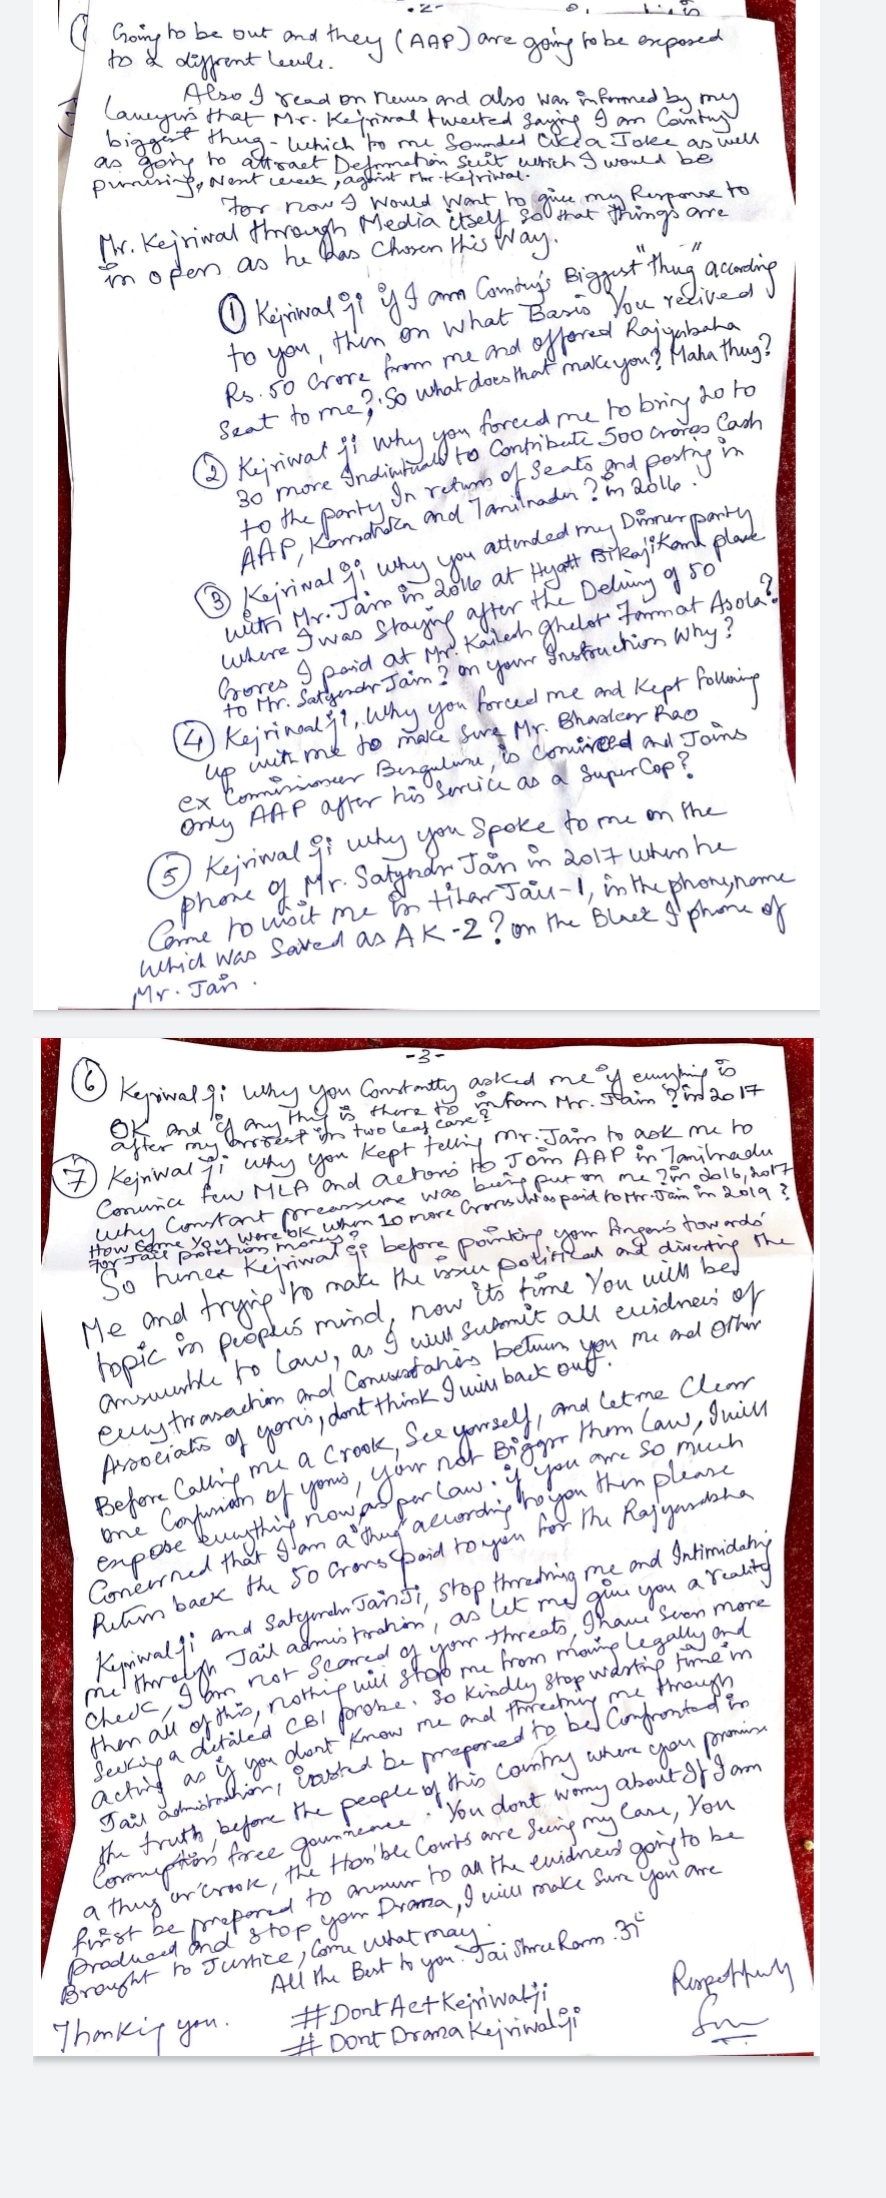 -2-
Going to be out and they (AAP) are going to be exposed
to a diffrent leule.
Also I read on news and also was informed by my
Laweyurs that Mr. Kejriwal tweeted saying I am Country's
biggest thug - which to me sounded like a Joke as well
as going to attract Defamation suit which I would be
purusing, Next week, against Mr. Kejriwal.
For now I would want to give my Response to
Mr. Kejriwal through Media itself so that things are
in open as he has chosen this way.
① Kejriwal Ji if I am Country's Biggest "thug" according
to you, then on what Basis You recived
Rs. 50 Crore from me and offered Rajyasbaha
Seat to me? So what does that make you? Maha thug?
② Kejriwal Ji why you forced me to bring 20 to
30 more Individuals to Contribute 500 crores Cash
to the party In return of Seats and posting in
AAP, Karnataka and Tamilnadu? in 2016.
③ Kejriwal Ji why you attended my Dinner party
with Mr. Jain in 2016 at Hyatt Bikajikama place
where I was staying after the Deliviry of 50
Crores I paid at Mr. Kailash Ghelot Farm at Asola?
to Mr. Satyendr Jain? on your Instruction Why?
④ Kejriwal Ji, why you forced me and kept following
up with me to make sure Mr. Bhaskar Rao
ex Commissioner Bengulure, is Convinced and Joins
only AAP after his Service as a Super Cop?
⑤ Kejriwal Ji why you spoke to me on the
phone of Mr. Satyndr Jain in 2017 when he
Came to visit me in tihar Jail-1, in the phone, name
which was Saved as AK-2? on the Black I phone of
Mr. Jain.
-3-
⑥ Kejriwal Ji why you Constantly asked me if everything is
OK and if any thing is there to inform Mr. Jain? in 2017
after my arrest in two leaf case?
⑦ Kejriwal Ji why you kept telling Mr. Jain to ask me to
Convince few MLA and actors to Join AAP in Tamilnadu
why Constant preassure was being put on me? in 2016, 2017
How come you were ok when 10 more Crores was paid to Mr. Jain in 2019?
for Jail protetion money?
So hence Kejriwal Ji before pointing your fingers towards
Me and trying to make the issue political and diverting the
topic in peoples mind, now its time You will be
answerble to Law, as I will submit all evidnces of
every transaction and Conversations between you me and other
Associates of yours, dont think I will back out.
Before Calling me a Crook, See yourself, and let me Clear
one Confusion of yours, your not Bigger then Law, I will
expose everything now as per Law. if you are so much
Concerned that I am a "thug" according to you then please
Return back the 50 Crores I paid to you for the Rajyasabha
Kejriwal Ji and Satyendr Jain Ji, stop thretning me and Intimidating
me through Jail admistration, as let me give you a reality
check, I am not Scarred of your threats, I have Seen more
then all of this, nothing will stop me from moving legally and
Seeking a detailed CBI probe. So kindly stop wasting time in
acting as if you dont know me and thretning me through
Jail admistration, insted be prepared to be Confronted in
the truth, before the people of this Country where you promise
Corruption free gounneance. You dont worry about If I am
a thug or Crook, the Hon'ble Courts are Seing my Case, You
first be prepared to answer to all the evidnces going to be
produced and stop your Drama, I will make Sure you are
Brought to Justice, Come what may.
All the Best to you. Jai Shree Ram.
Thanking you.
#DontActKejriwalji
#DontDramaKejriwalji
Respetfully